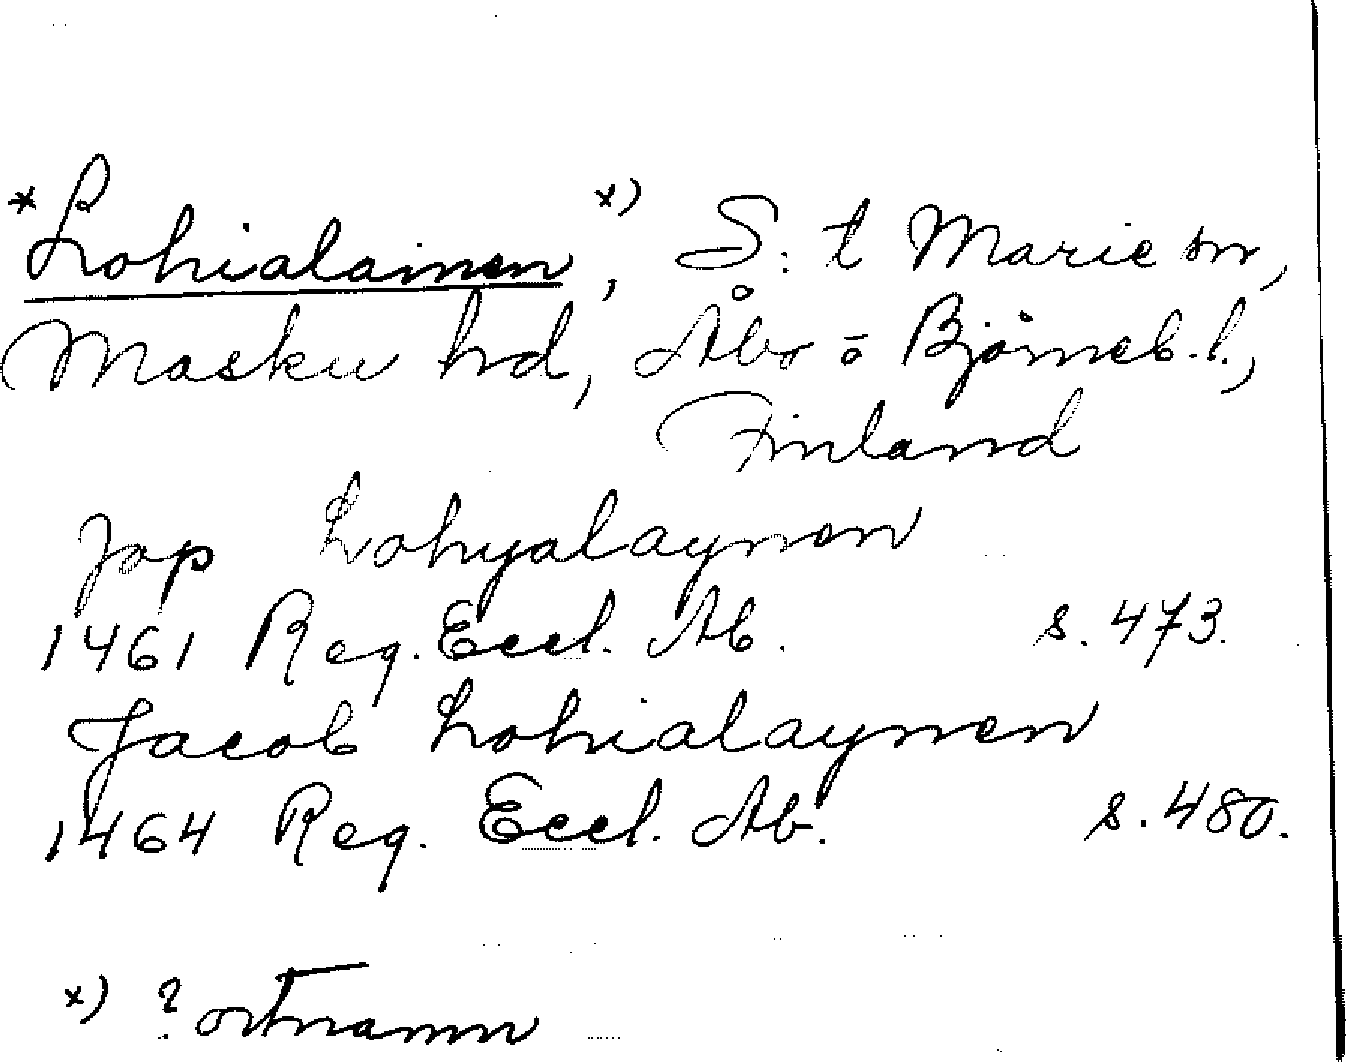 *Lohialainen x), S:t Marie sn,
Masku hd, Åbo o Björneb. l.,
Finland
Jop Lohyalaynen
1461 Reg. Eccl. Ab. s. 473.
Jacob Lohialaynen
1464 Reg. Eccl. Ab. s. 480.
x) ? ortnamn